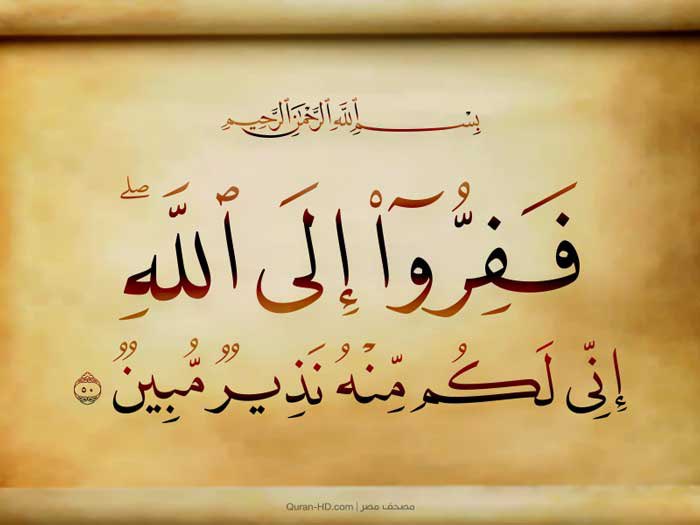 بِسْمِ ٱللَّهِ ٱلرَّحْمَٰنِ ٱلرَّحِيمِ
فَفِرُّوٓا۟ إِلَى ٱللَّهِ ۖ
إِنِّى لَكُم مِّنْهُ نَذِيرٌ مُّبِينٌ ۝٥٠
Quran-HD.com | مصحف مصر